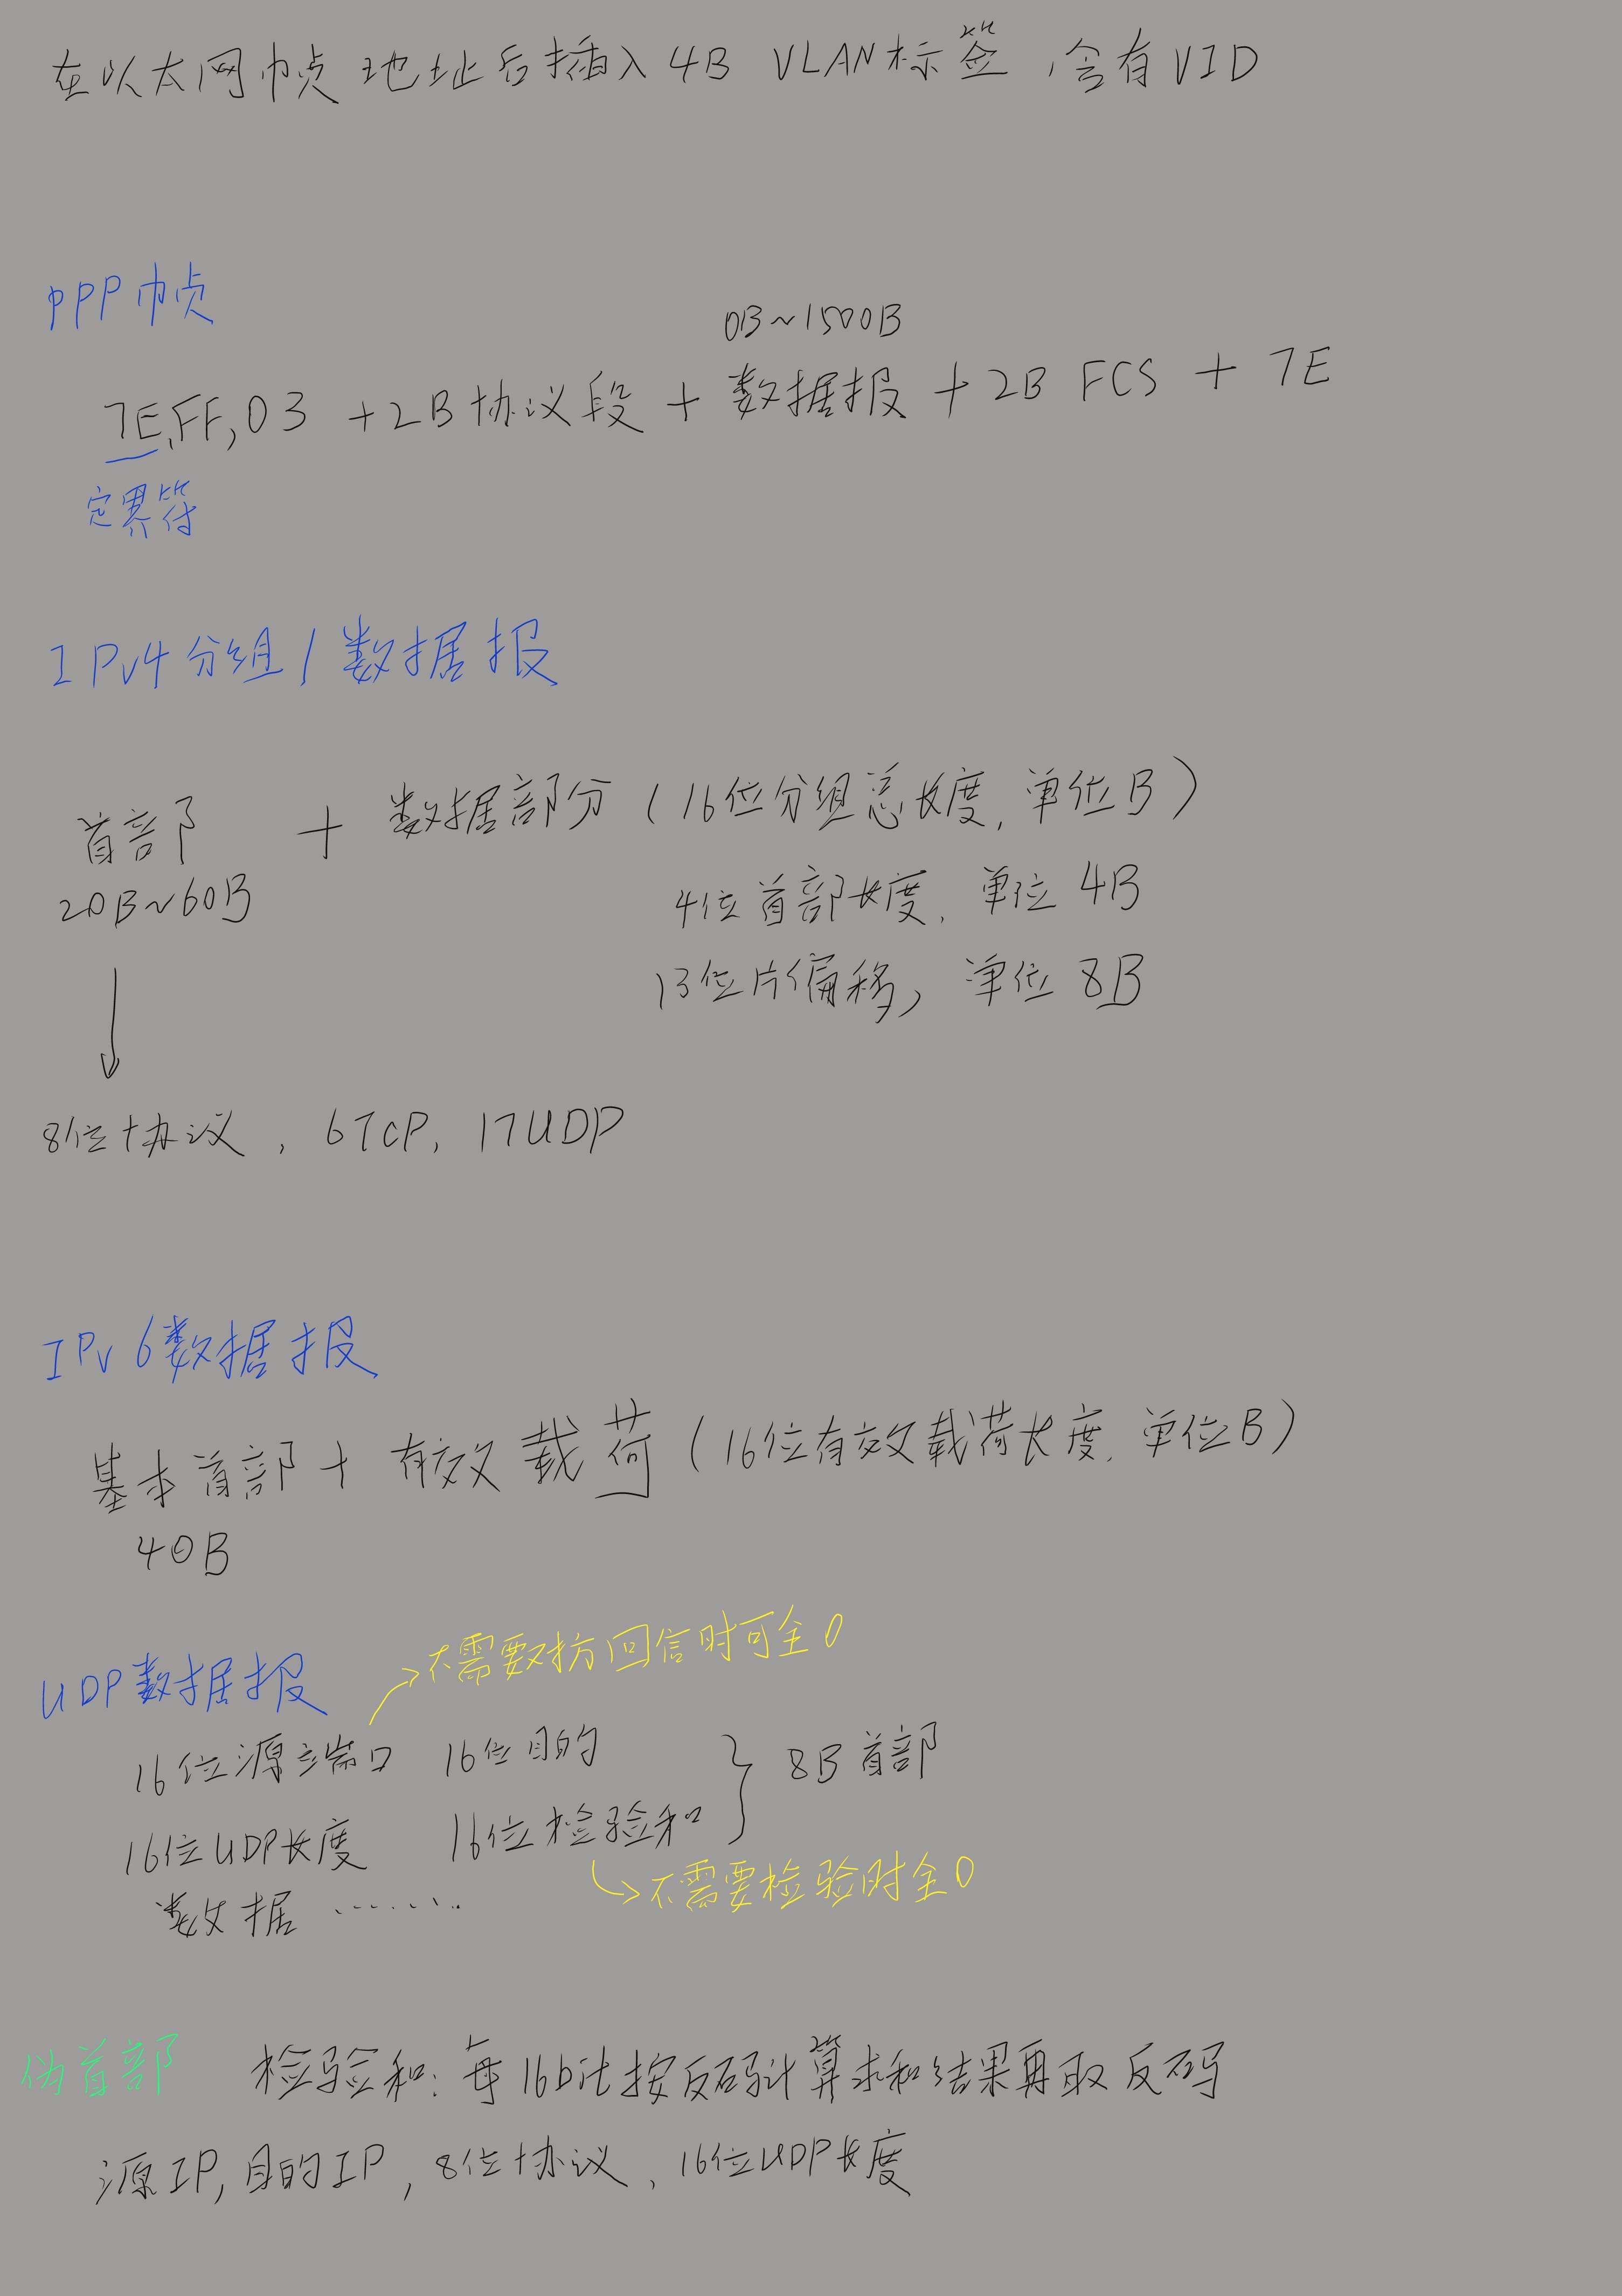 在以太网帧地址后插入4B VLAN标签,含有VID
PPP帧
0B~1500B
7E,FF,03 +2B协议段 + 数据报 + 2B FCS + 7E
定界符
IPv4分组/数据报
首部 + 数据部分(16位分组总长度,单位B)
20B~60B
4位首部长度,单位4B
13位片偏移,单位8B
8位协议,6TCP,17UDP
IPv6数据报
基本首部+有效载荷(16位有效载荷长度,单位B)
40B
UDP数据报
不需要对方回信时可全0
16位源端口 16位目的
8B首部
16位UDP长度 16位检验和
不需要检验时全0
数据 ........
伪首部 检验和:每16bit按反码计算求和结果再取反码
源IP,目的IP,8位协议,16位UDP长度